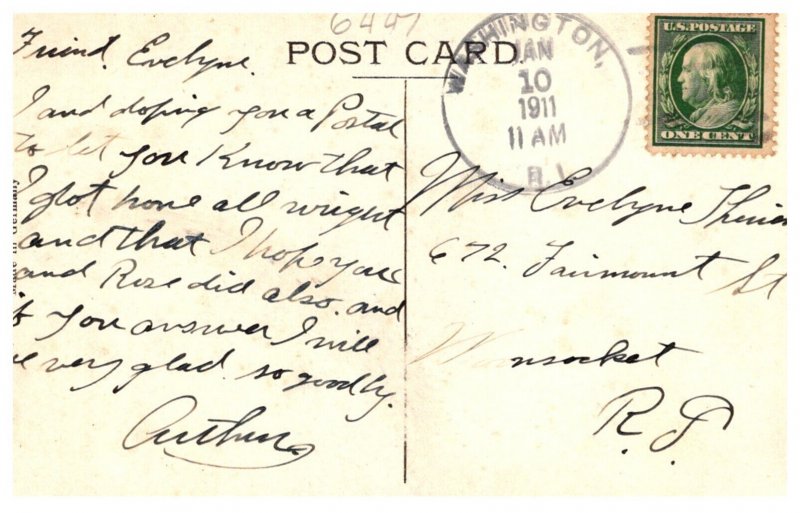 6447
POST CARD.
WASHINGTON,
JAN
10
1911
11 AM
R.I.
U.S. POSTAGE
ONE CENT
Made in Germany
Friend. Evelyne.
I and doping you a Postal
to let you Know that
I glot hone all wright
and that I hope you
and Rose did also. and
if you answer I will
be very glad. so goodly.
Arthur
Miss Evelyne
672. Fairmount St
Woonsocket
R.I.